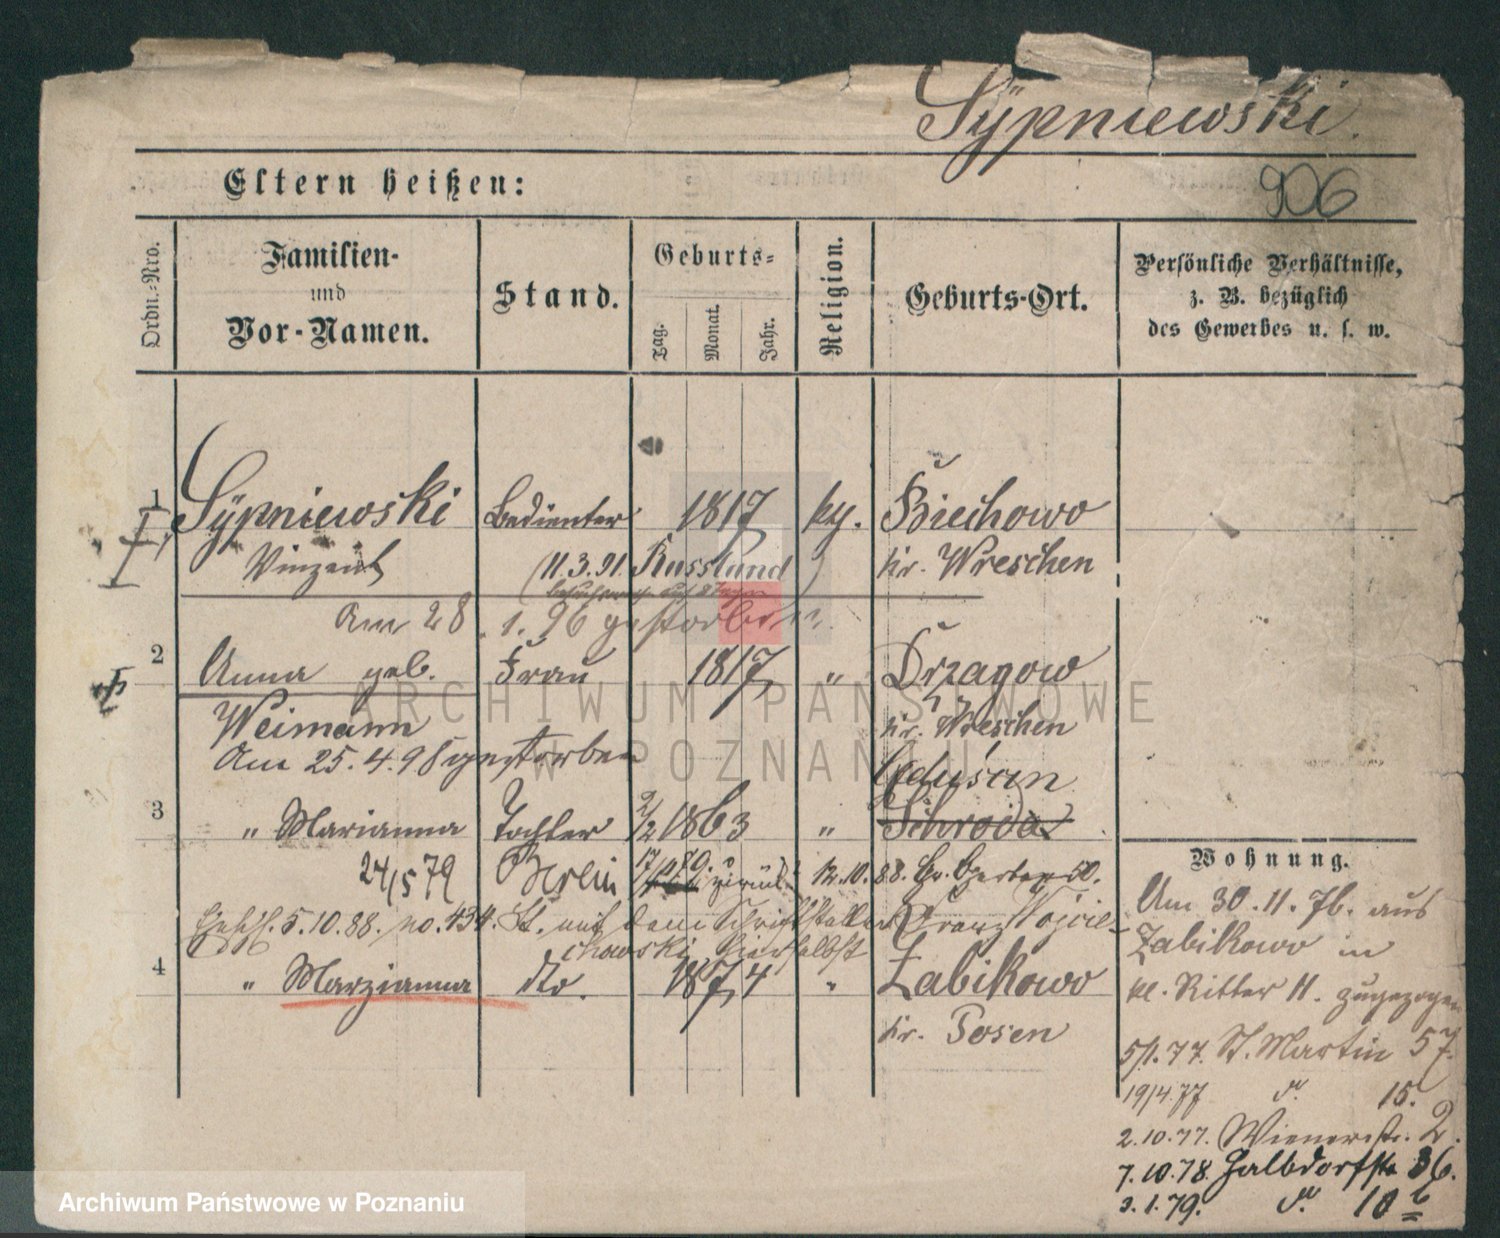 Sÿpniewski.
Eltern heißen:
906
Ordn.-Nro.
Familien-
und
Vor-Namen.
Stand.
Geburts-
Tag.
Monat.
Jahr.
Religion.
Geburts-Ort.
Persönliche Verhältnisse,
z. B. bezüglich
des Gewerbes u. s. w.
1 Sÿpniewski Bedienter 1817 Biechowo
Vinzent (11.3.91. Russland) Kr. Wreschen
Am 28.1.96 gestorben.
2 Anna geb. Frau 1817 " Drzazgow
Weimann Kr. Wreschen
Am 25.4.98 gestorben
3 " Marianna Tochter 2/2 1863 " Schroda
24/5 79 Berlin zurück 12.10.88.
5.10.88. No. 434. mit dem Schriftsteller Franz Wojcie-
chowski hierselbst
4 " Marzianna dto. 1874 " Zabikowo
Kr. Posen
Wohnung.
Am 30.11.76. aus
Zabikowo in
kl. Ritter 11. zugezogen
5/1.77. St. Martin 57.
19/4.77 do. 15.
2.10.77. Wienerstr. 2.
7.10.78. Halbdorfstr 36.
3.1.79. do. 10 b
ARCHIWUM PAŃSTWOWE
W POZNANIU
Archiwum Państwowe w Poznaniu